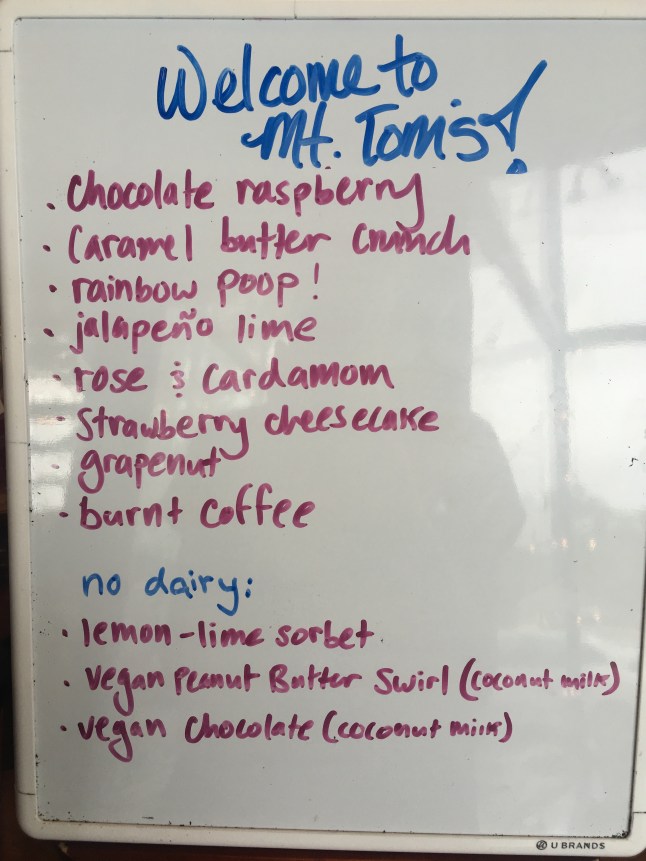 Welcome to
Mt. Tom's!
• Chocolate raspberry
• Caramel butter crunch
• rainbow poop!
• jalapeño lime
• rose & cardamom
• Strawberry cheesecake
• grapenut
• burnt coffee
no dairy:
• lemon-lime sorbet
• vegan Peanut Butter Swirl (coconut milk)
• vegan chocolate (coconut milk)
U BRANDS